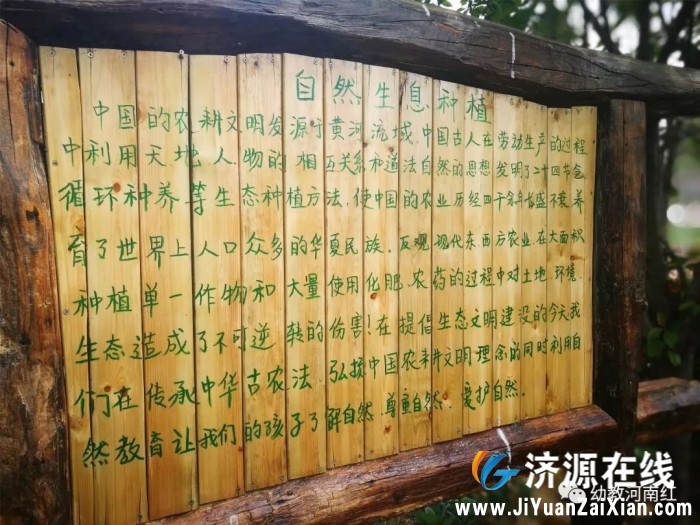 自然生息种植
中国的农耕文明发源于黄河流域,中国古人在劳动生产的过程
中利用天地人、物的相互关系和道法自然的思想发明了二十四节令
循环种养等生态种植方法,使中国的农业历经四千余年长盛不衰养
育了世界上人口众多的华夏民族。反观现代东西方农业,在大面积
种植单一作物和大量使用化肥、农药的过程中对土地、环境、
生态造成了不可逆转的伤害!在提倡生态文明建设的今天我
们在传承中华古农法弘扬中国农耕文明理念的同时利用自
然教育让我们的孩子了解自然、尊重自然、爱护自然。
济源在线
www.JiYuanZaiXian.com
幼教河南红